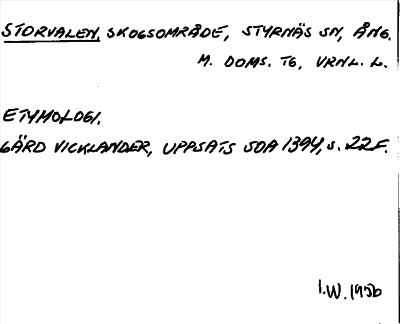 STORVALEN, SKOGSOMRÅDE, STYRNÄS SN, ÅNG.
M. DOMS. TG, VRNL. L.
ETYMOLOGI.
GÄRD VICKLANDER, UPPSATS SOA 1394, S. 22F.
I.W. 1956